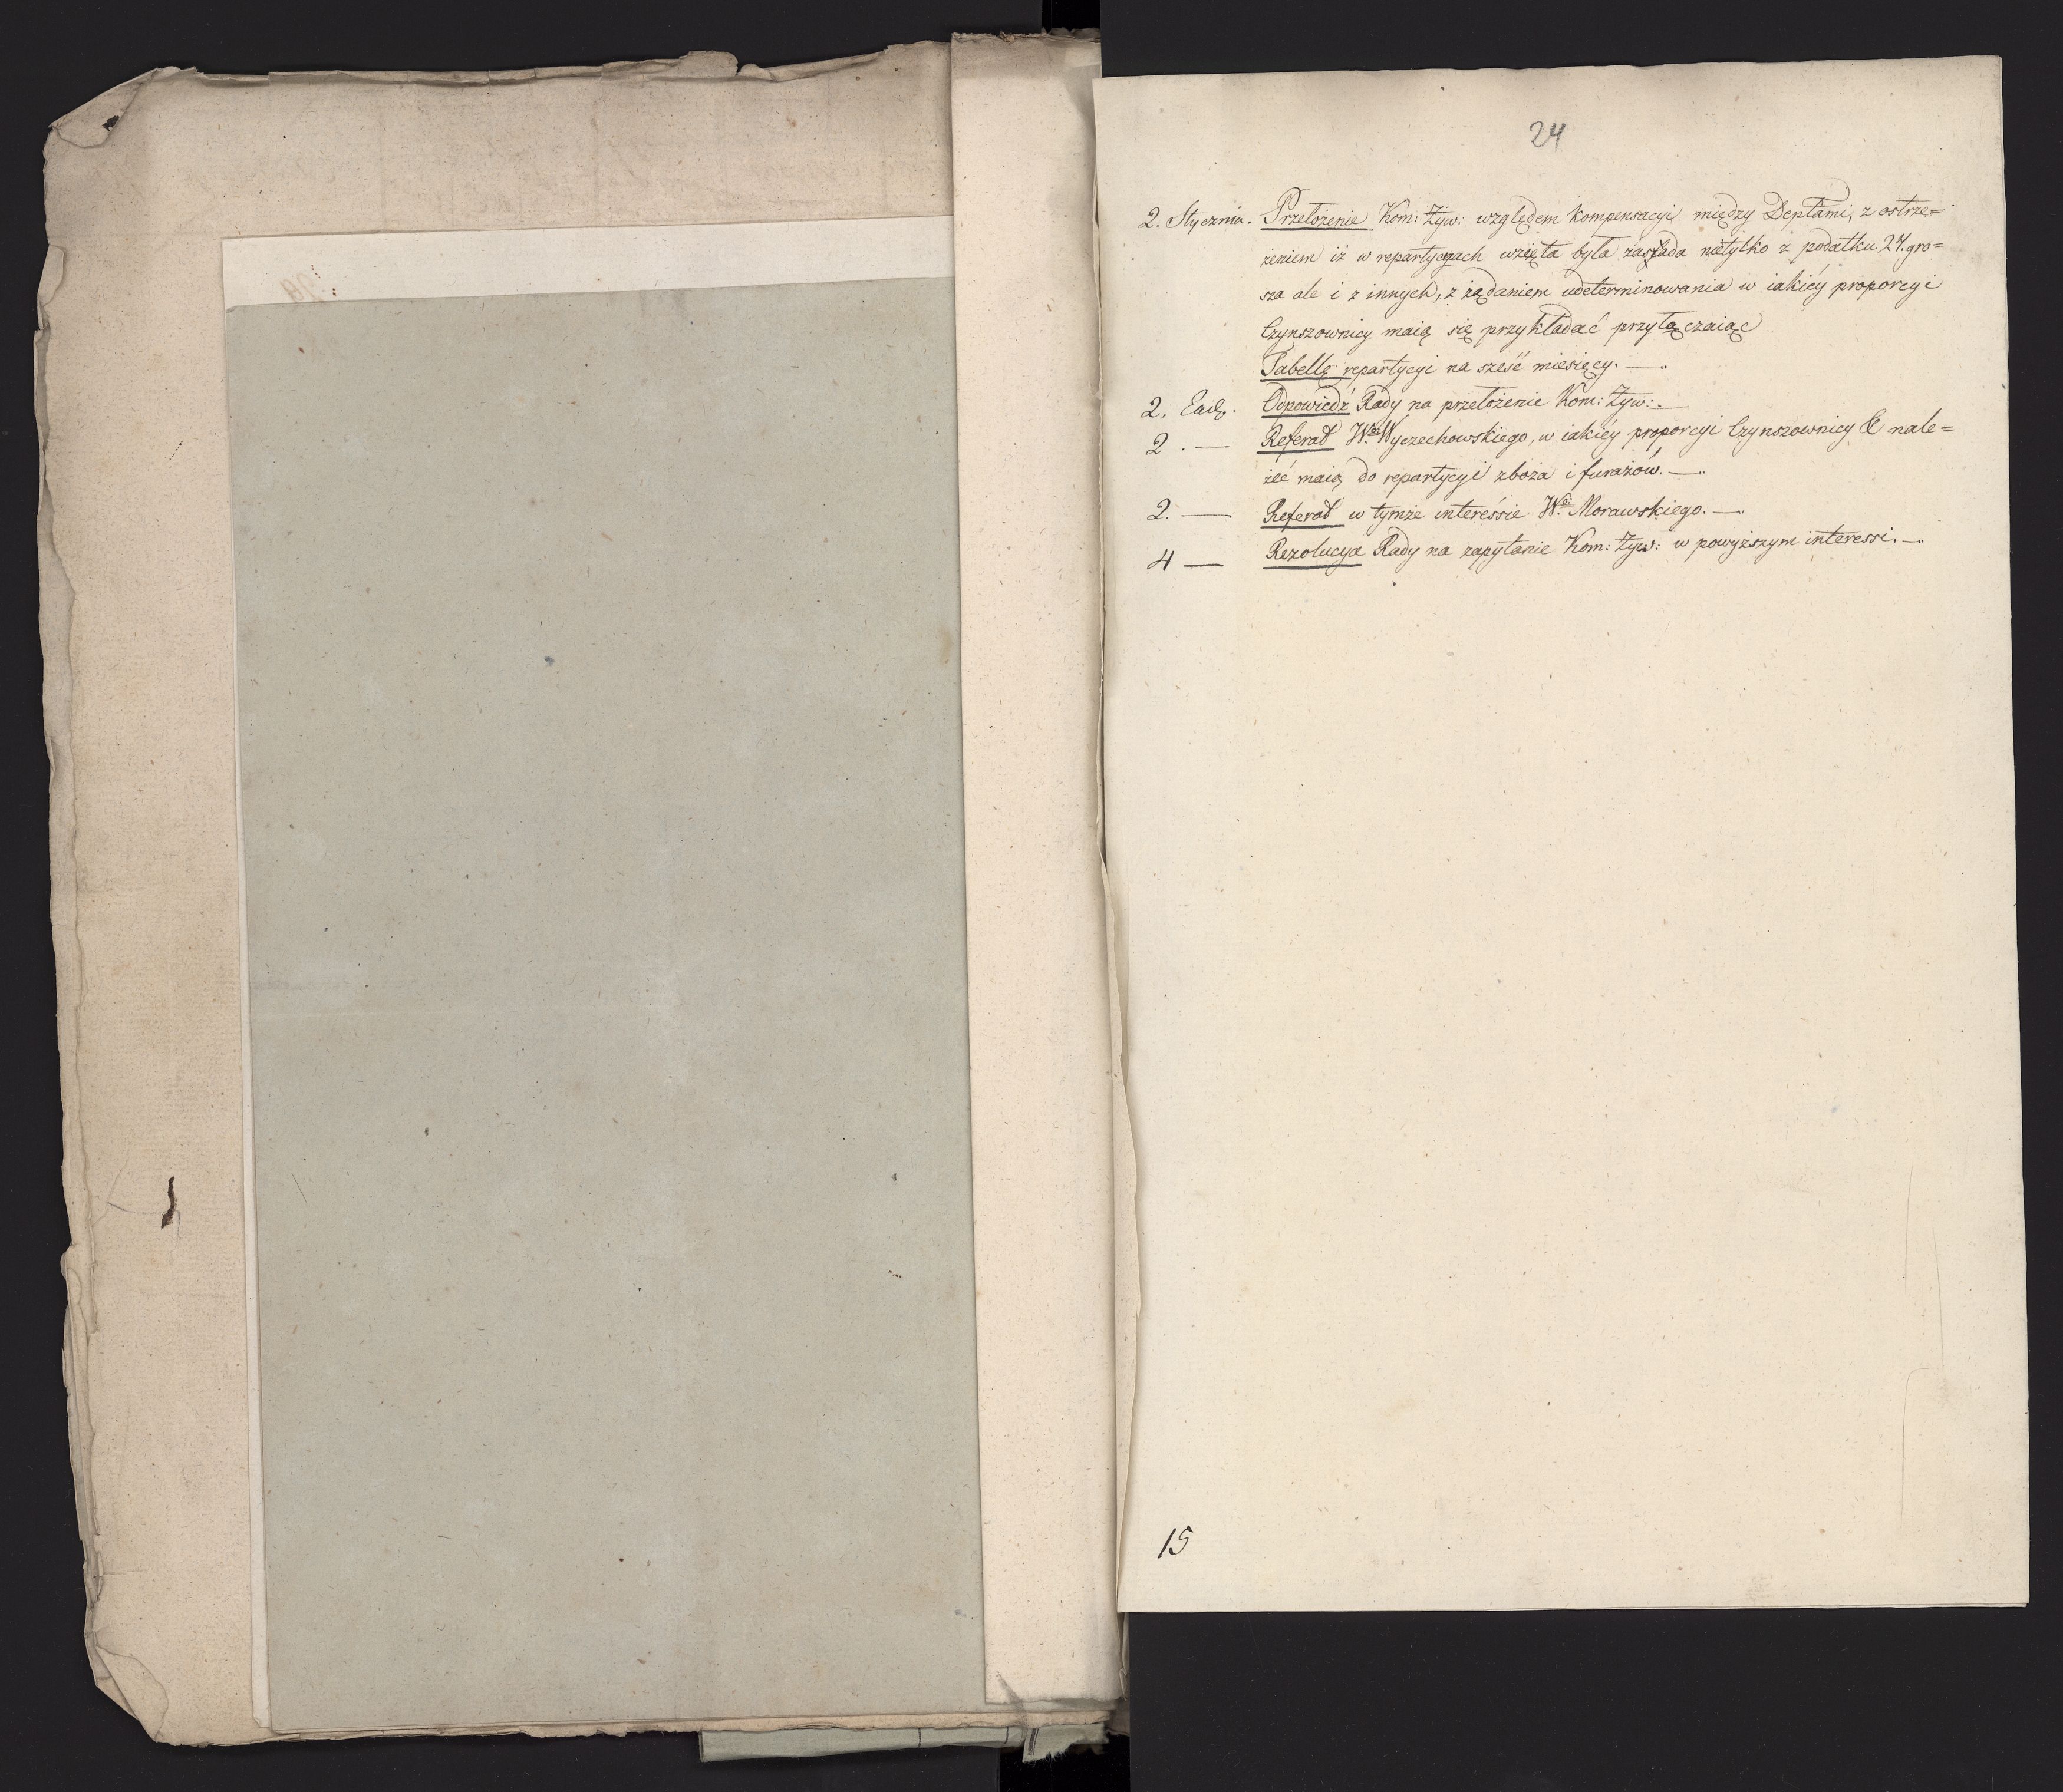 24
2. Stycznia. Przełożenie Kom: Żyw: względem kompensacyi między Deptami, z ostrze=
żeniem iż w repartycyach wzięta była zasada nietylko z podatku 24. gro=
sza ale i z innych, z żądaniem udeterminowania w iakiéy proporcyi
Czynszownicy maią się przykładać przyłączaiąc
Tabellę repartycyi na sześć miesięcy. —
2. Ead. Odpowiedź Rady na przełożenie Kom: Żyw: —
2. — Referat W. Wyczechowskiego, w iakiéy proporcyi Czynszownicy & nale=
żeć maią do repartycyi zboża i furażów. —
2. — Referat w tymże interessie W. Morawskiego. —
4 — Rezolucya Rady na zapytanie Kom: Żyw: w powyższym interessi. —
15